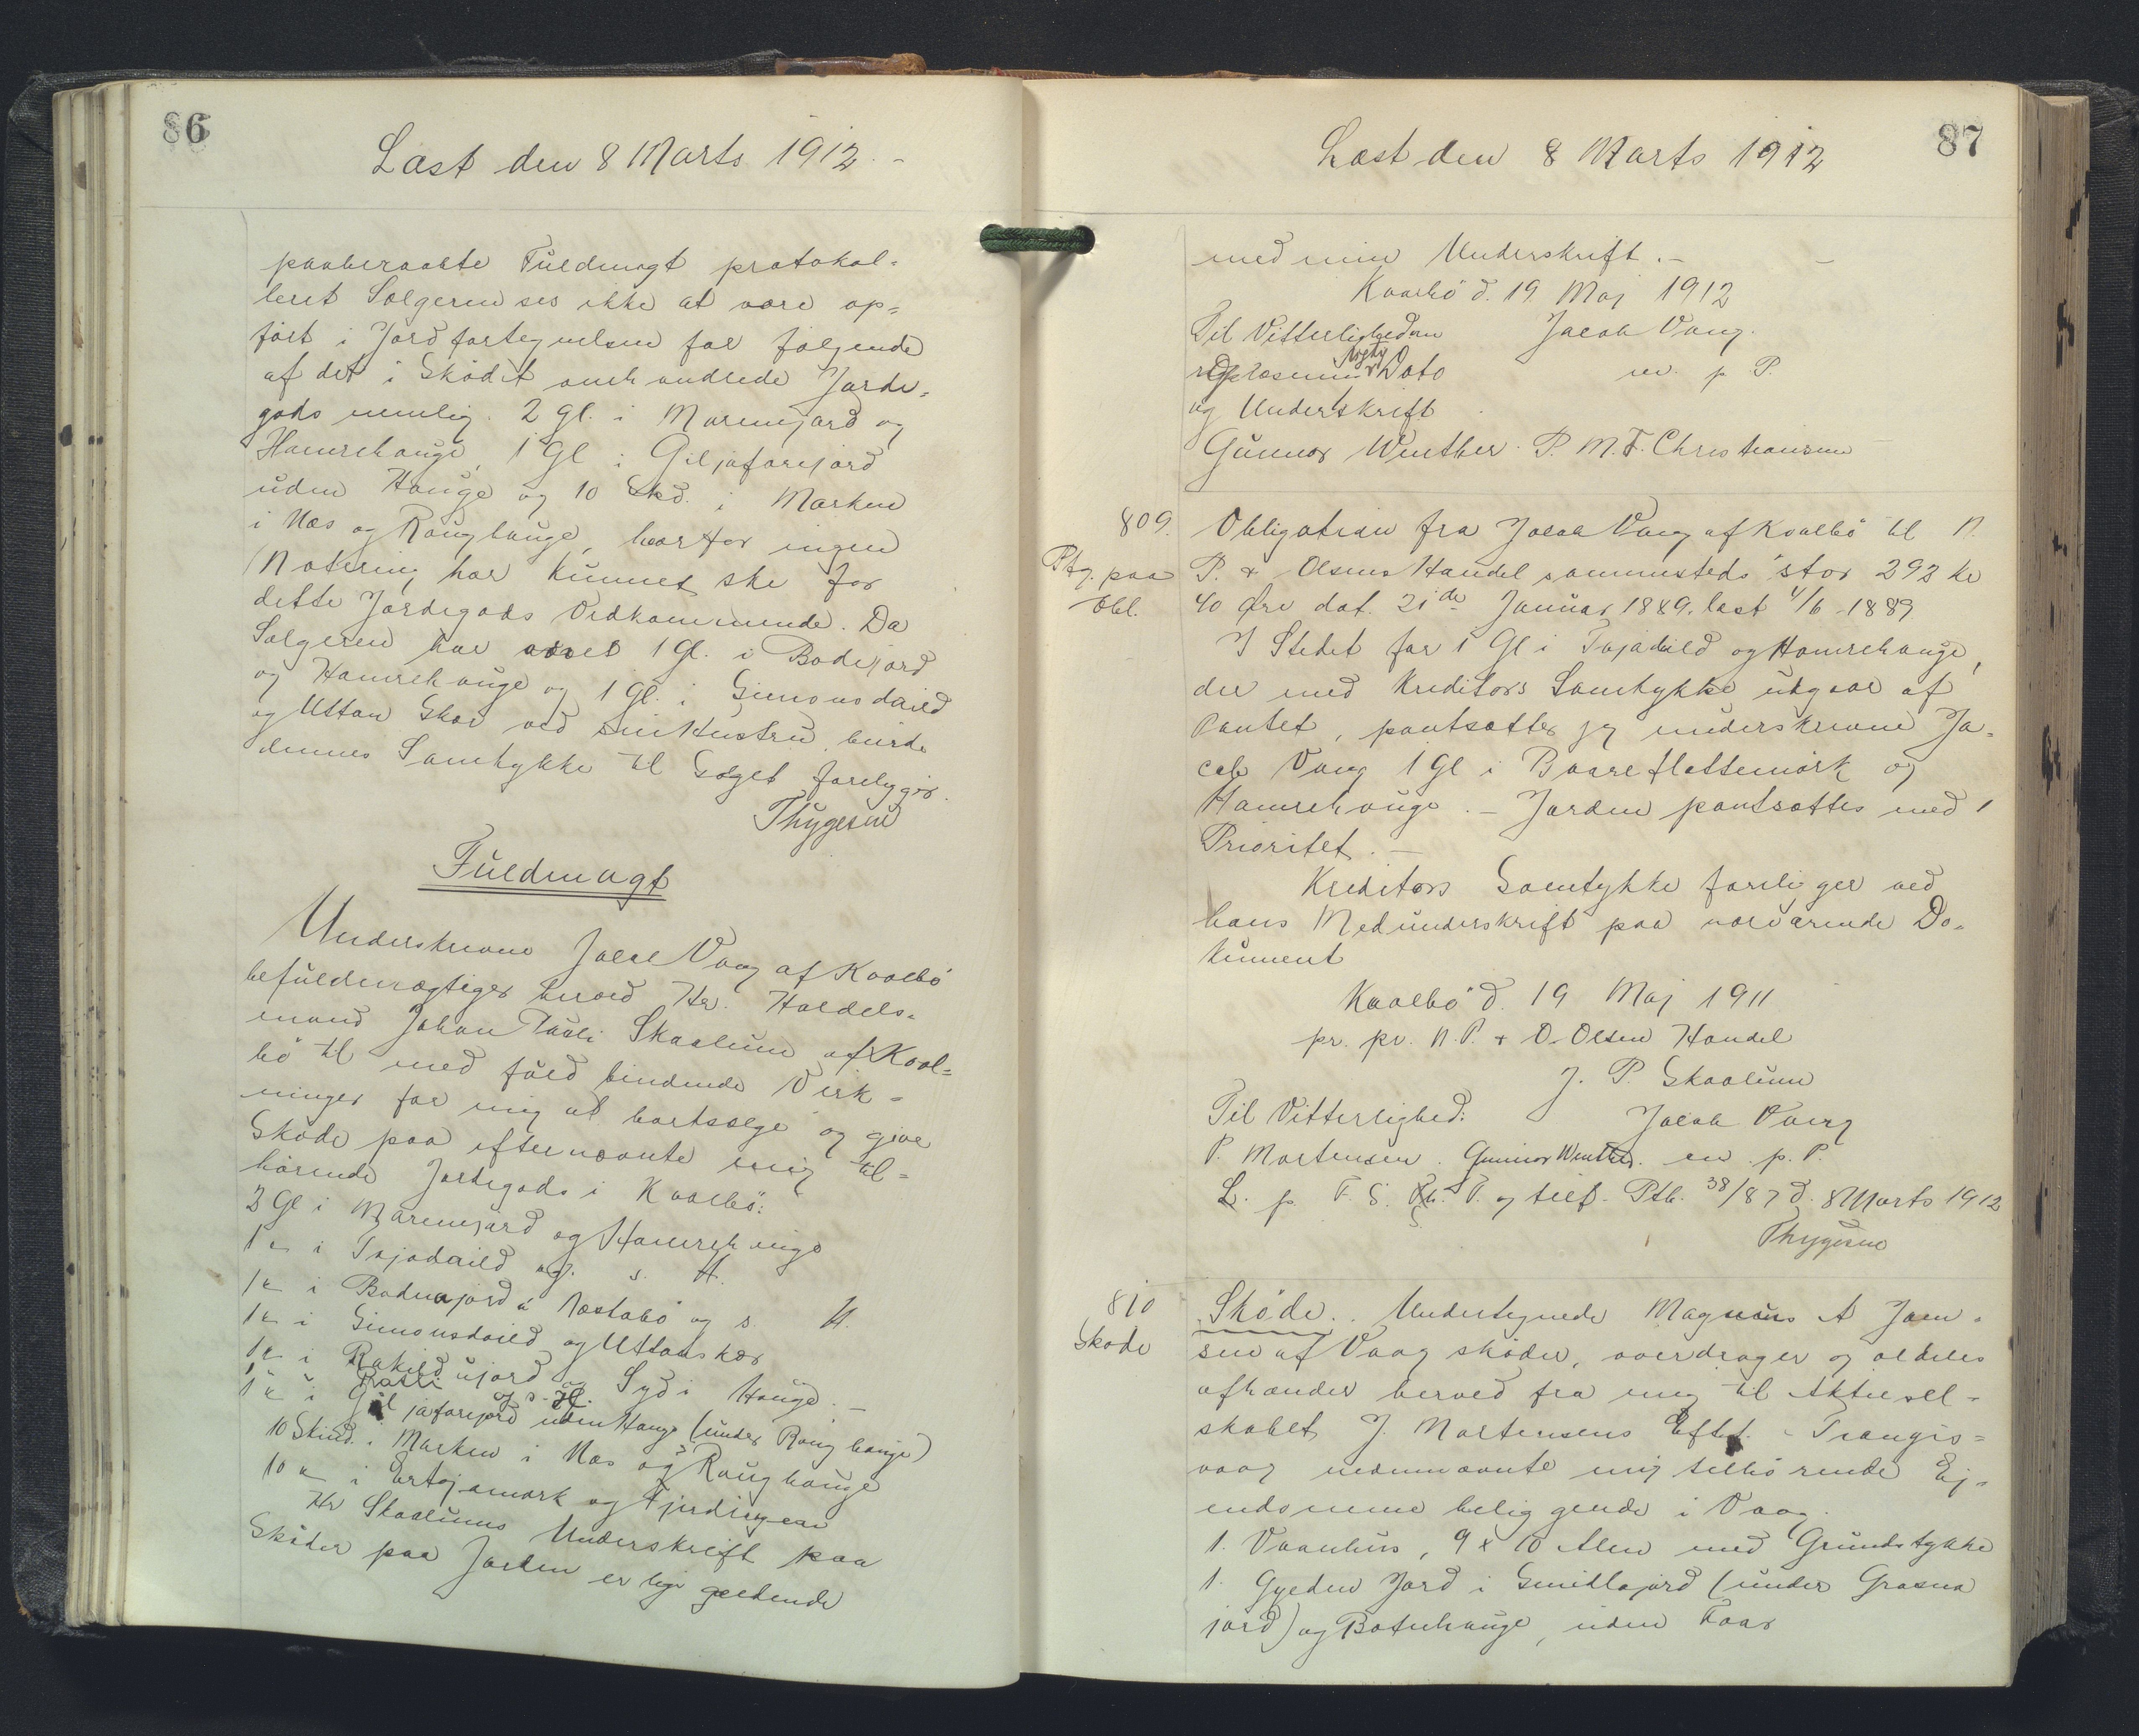 86
Læst den 8 Marts 1912.-
paaberaabte Fuldmagt protokol-
leret Sælgeren ses ikke at være op-
ført i Jordfortegnelsen for følgende
af det i Skødet omhandlede Jorde-
gods nemlig. 2 Gl. i Marenjard og
Hamrehauge, 1 Gl i Giljaforejord
uden Hauge og 10 Skd. i Marken
i Næs og Røughauge, hvorfor ingen
Notering har kunnet ske for
dette Jordegods Vedkommende. Da
Sælgeren har 1 Gl. i Bodejord
og Hamrehauge og 1 Gl. i Simonsdaild
og Uttan Skor ved sin Hustru, burde
dennes Samtykke til Salget foreligge.
Thygesen
Fuldmagt
Underskrevne Jacob Vang af Kvalbø
befuldmægtiger herved Hr. Handels-
mand Johan Pauli Skaalum af Kval-
bø til med fuld bindende Virk-
ninger for mig at bortsælge og give
Skøde paa efternævnte mig til-
hørende Jordegods i Kvalbø:
2 Gl i Marenjard og Hamrehauge
1 " i Tajadaild og s. H.
1 " i Bodnajord á Næstabø og s. H.
1 " i Simonsdaild og Uttanskor
1 " i Rakildujord og Syd i Hauge.-
1 " i Giljaforejord uden Hauge (under Røughauge)
10 Skind. i Marken i Næs og Røughauge
10 " i Ertajamørk og Fjerdingene
Hr Skaalums Underskrift paa
Skøder paa Jorden er lige gældende
87
Læst den 8 Marts 1912
med min Underskrift.-
Kvalbø d. 19 Maj 1912
Til Vitterlighed om Jacob Vang.
rigtig Dato m. p P.
og Underskrift
Gunnar Winther. P. M. F. Christiansen
809. Obligation fra Jacob Vang af Kvalbø til N.
Ptg. paa P. & Olsens Handel sammesteds stor 292 Kr
Obl. 40 Øre dat. 21de Januar 1889. læst 4/6-1889
I Stedet for 1 Gl i Tajadaild og Hamrehauge,
der med Kreditors Samtykke udgaar af
Pantet, pantsætter jeg underskrevne Ja-
cob Vang 1 Gl i Baareflottemørk og
Hamrehauge.- Jorden pantsættes med 1
Prioritet.-
Kreditors Samtykke foreligger ved
hans Medunderskrift paa nærværende Do-
kument
Kvalbø d. 19 Maj 1911
pr. pr. N. P. & O. Olsen Handel
J. P. Skaalum
Til Vitterlighed: Jacob Vang
P. Mortensen. Gunnar Winther. m. p. P.
L. p F. S. Th. T. og tilf. Ptb. 38/87 d. 8 Marts 1912
Thygesen
810 Skøde. Undertegnede Magnus A Joen-
Skøde sen af Vaag skøder, overdrager og aldeles
afhænder herved fra mig til Aktiesel-
skabet J. Mortensens Eftf. - Trangis-
vaag nedennævnte mig tilhørende Ej-
endomme beliggende i Vaag.
1. Vaanhus, 9 x 10 Alen med Grundstykke
1. Gylden Jord i Smidlajord (under Grasna
jord) og Botnhauge, uden Faar